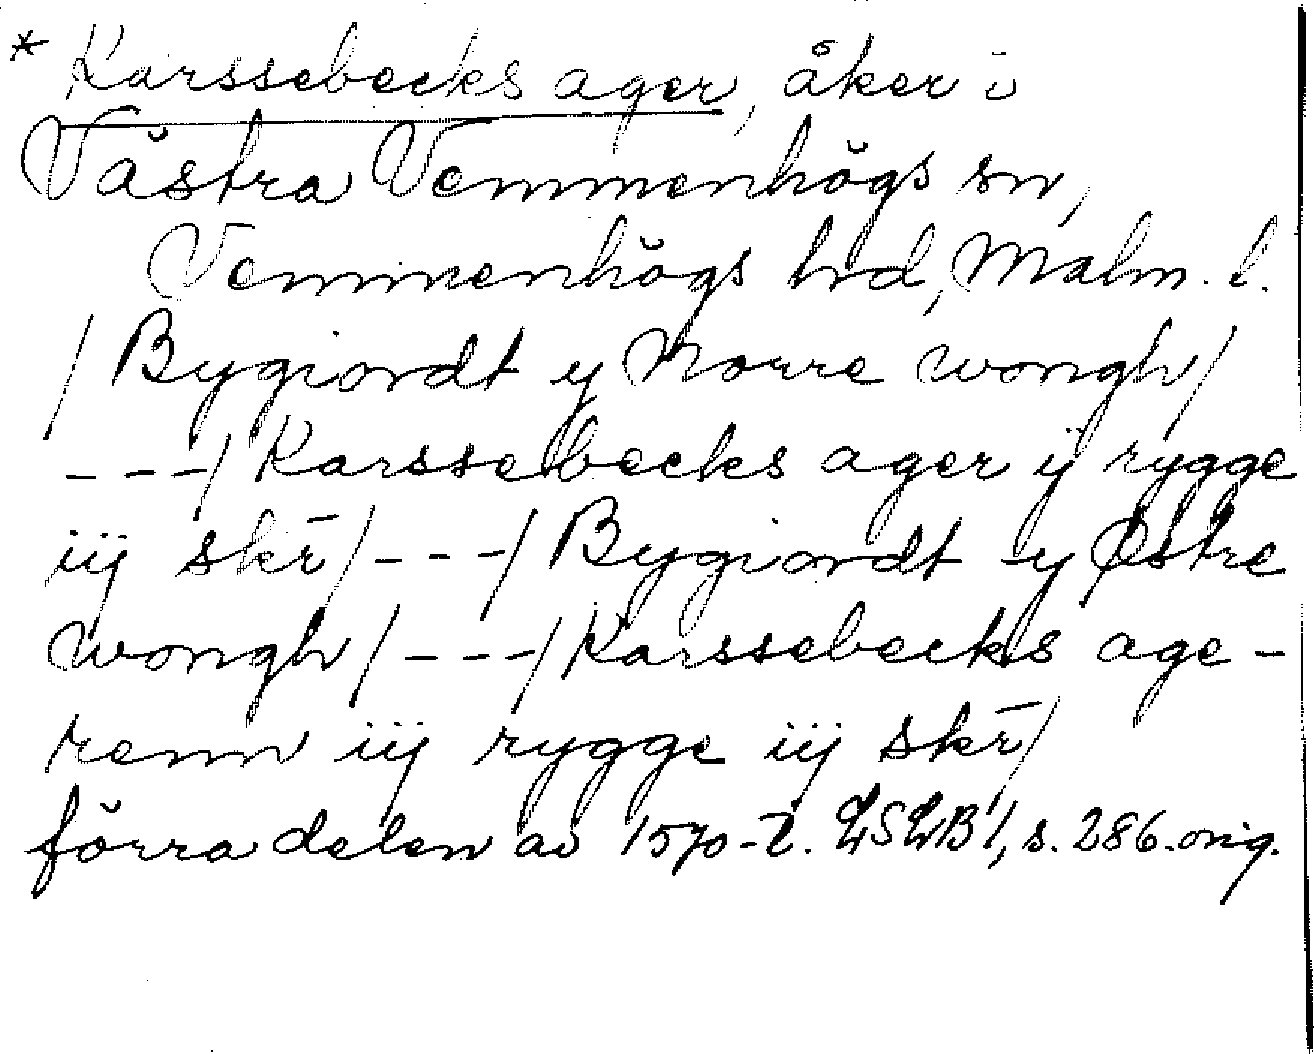 * Karssebecks ager, åker i
Västra Vemmenhögs sn,
Vemmenhögs hrd, Malm. l.
/ Bygiordt y Norre wongh /
---/ Karssebecks ager ij rygge
iij skr̄ /---/ Bygiordt y Østre
wongh /---/ Karssebecks age-
renn iij rygge iij skr̄ /
förra delen av 1570-t. LSLB 1, s. 286. orig.